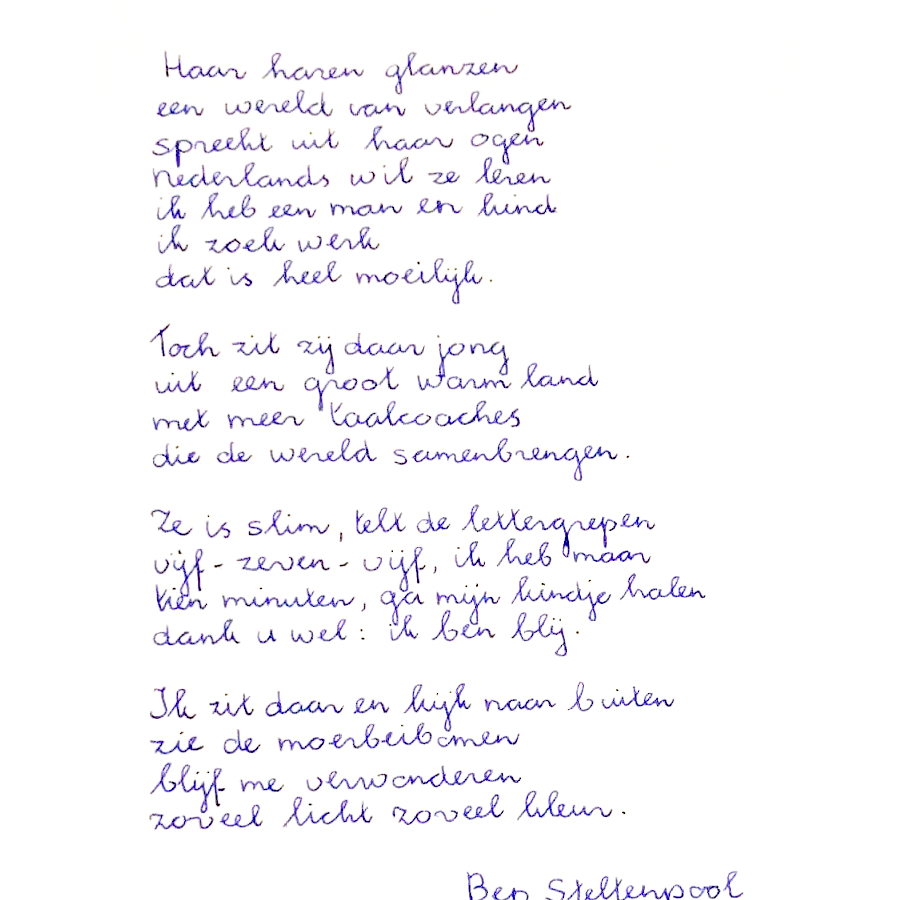 Haar haren glanzen
een wereld van verlangen
spreekt uit haar ogen
nederlands wil ze leren
ik heb een man en kind
ik zoek werk
dat is heel moeilijk.
Toch zit zij daar jong
uit een groot warm land
met meer taalcoaches
die de wereld samenbrengen.
Ze is slim, telt de lettergrepen
vijf - zeven - vijf, ik heb maar
tien minuten, ga mijn kindje halen
dank u wel: ik ben blij.
Ik zit daar en kijk naar buiten
zie de moerbeibomen
blijf me verwonderen
zoveel licht zoveel kleur.
Bep Steltenpool